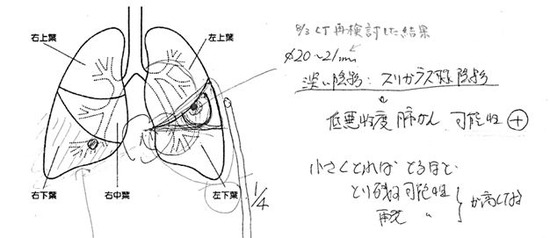 右上葉
左上葉
右下葉
右中葉
左下葉
1/4
8/3 CT 再検討した結果
φ20~21mm
淡い陰影:スリガラス様陰影
低悪性度 肺がん 可能性 +
小さくとればとるほど
とり残す可能性
再発 〃
が高くなる